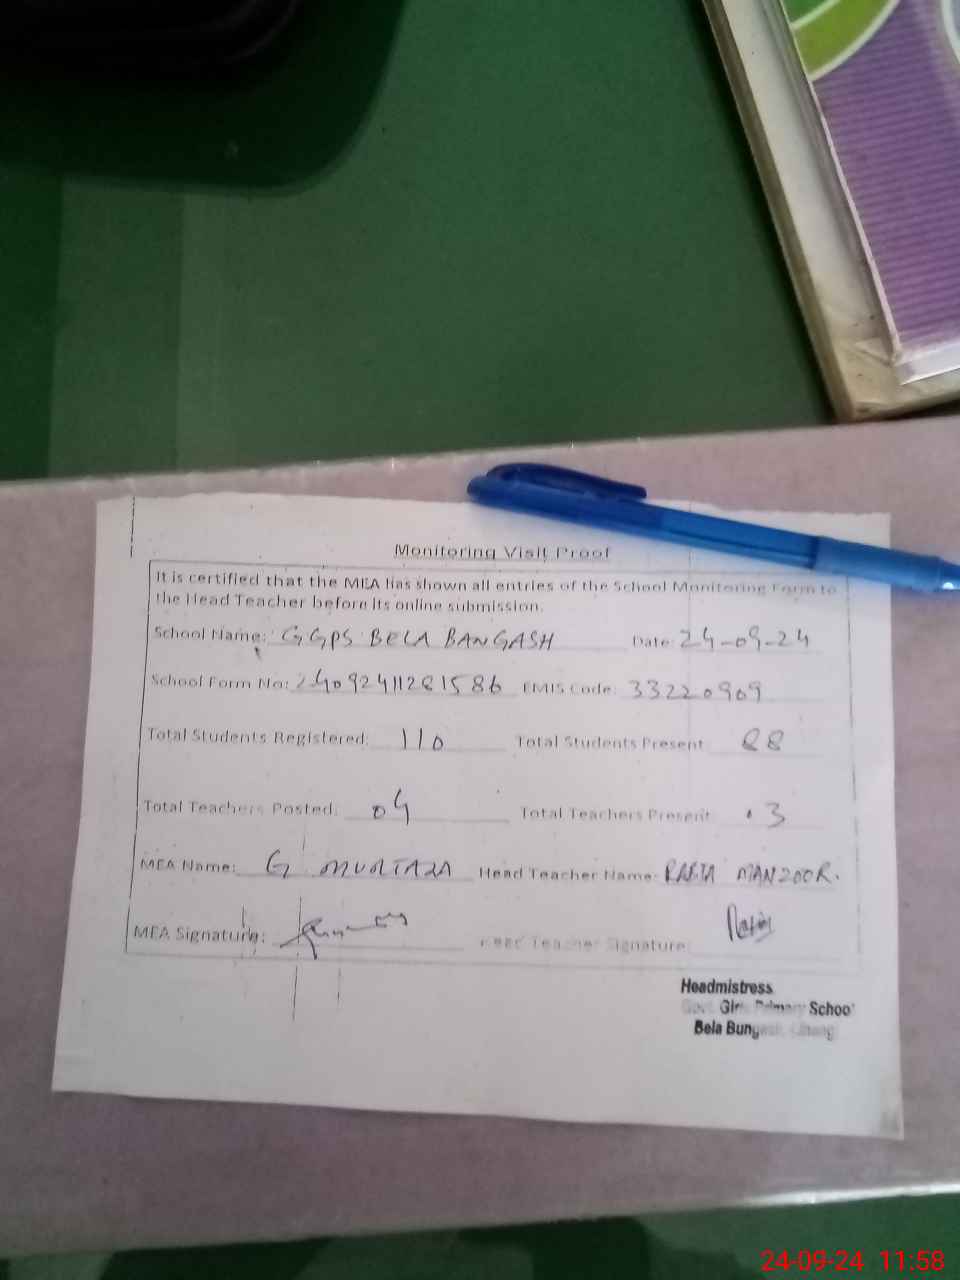 Monitoring Visit Proof
It is certified that the MEA has shown all entries of the School Monitoring Form to
the Head Teacher before its online submission.
School Name: GGPS BELA BANGASH Date: 24-09-24
School Form No: 24092411281586 EMIS Code: 33220909
Total Students Registered: 110 Total Students Present: 88
Total Teachers Posted: 04 Total Teachers Present: 03
MEA Name: G MURTAZA Head Teacher Name: RABIA MANZOOR.
MEA Signature: Head Teacher Signature:
Headmistress
Govt. Girls Primary School
Bela Bungash
24-09-24 11:58